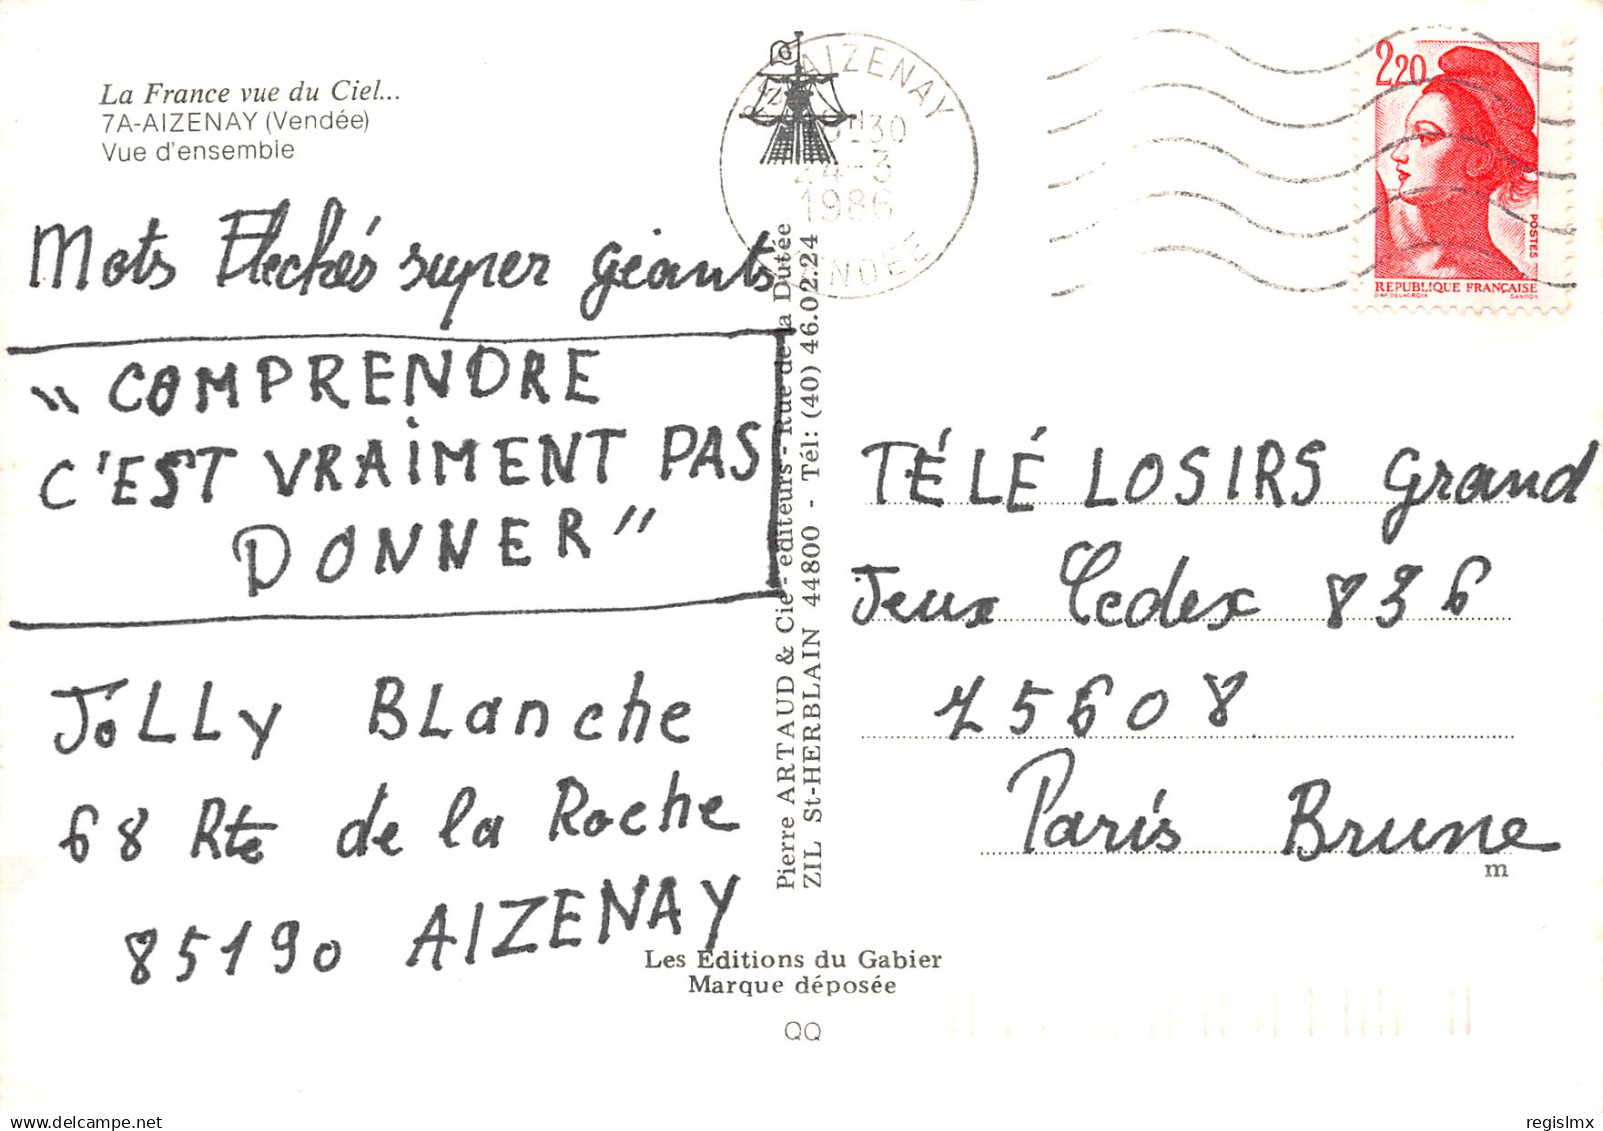 La France vue du Ciel...
7A-AIZENAY (Vendée)
Vue d'ensemble
Mots Fléchés super géants
"COMPRENDRE
C'EST VRAIMENT PAS
DONNER"
JOLLy BLanche
68 Rte de la Roche
85190 AIZENAY
AIZENAY
24-3
1986
VENDÉE
2,20
POSTES
REPUBLIQUE FRANÇAISE
D'AP. DELACROIX
GANDON
Pierre ARTAUD & Cie - éditeurs - Rue de la Dutée
ZIL St-HERBLAIN 44800 - Tél: (40) 46.02.24
TÉLÉ LOSIRS Grand
Jeux Cedex 836
75608
Paris Brune
m
Les Editions du Gabier
Marque déposée
QQ
delcampe.net
regislmx